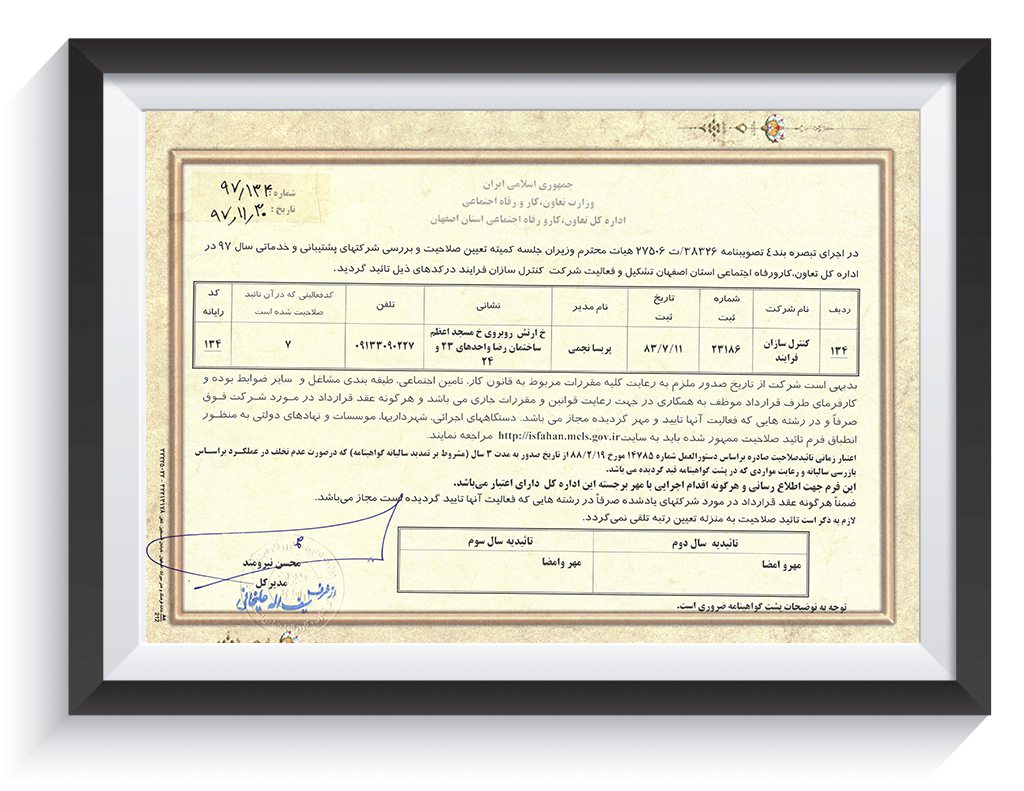 جمهوری اسلامی ایران
وزارت تعاون،کار و رفاه اجتماعی
اداره کل تعاون،کارو رفاه اجتماعی استان اصفهان
شماره: ۹۷/۱۳۴
تاریخ: ۹۷/۱۱/۳۰
در اجرای تبصره بند٤ تصویبنامه ۳۸۳۲۶/ت ۲۷۵۰۶ هیات محترم وزیران جلسه کمیته تعیین صلاحیت و بررسی شرکتهای پشتیبانی و خدماتی سال ۹۷ در
اداره کل تعاون،کارورفاه اجتماعی استان اصفهان تشکیل و فعالیت شرکت کنترل سازان فرایند درکدهای ذیل تائید گردید.
ردیف نام شرکت شماره ثبت تاریخ ثبت نام مدیر نشانی تلفن کدفعالیتی که درآن تائید صلاحیت شده است کد رایانه
۱۳۴ کنترل سازان فرایند ۲۳۱۸۶ ۸۳/۷/۱۱ پریسا نجمی خ ارتش روبروی خ مسجد اعظم ساختمان رضا واحدهای ۲۳ و ۲۴ ۰۹۱۳۳۰۹۰۲۲۷ ۷ ۱۳۴
بدیهی است شرکت از تاریخ صدور ملزم به رعایت کلیه مقررات مربوط به قانون کار، تامین اجتماعی، طبقه بندی مشاغل و سایر ضوابط بوده و
کارفرمای طرف قرارداد موظف به همکاری در جهت رعایت قوانین و مقررات جاری می باشد و هرگونه عقد قرارداد در مورد شرکت فوق
صرفاً و در رشته هایی که فعالیت آنها تایید و مهر گردیده مجاز می باشد. دستگاههای اجرائی، شهرداریها، موسسات و نهادهای دولتی به منظور
انطباق فرم تائید صلاحیت ممهور شده باید به سایت http://isfahan.mcls.gov.ir مراجعه نمایند.
اعتبار زمانی تائیدصلاحیت صادره براساس دستورالعمل شماره ۱۴۷۸۵ مورخ ۸۸/۲/۱۹ از تاریخ صدور به مدت ۳ سال (مشروط بر تمدید سالیانه گواهینامه) که درصورت عدم تخلف در عملکرد براساس
بازرسی سالیانه و رعایت مواردی که در پشت گواهینامه قید گردیده می باشد.
این فرم جهت اطلاع رسانی و هرگونه اقدام اجرایی با مهر برجسته این اداره کل دارای اعتبار می‌باشد.
ضمناً هرگونه عقد قرارداد در مورد شرکتهای یادشده صرفاً در رشته هایی که فعالیت آنها تایید گردیده است مجاز می‌باشد.
لازم به ذکر است تائید صلاحیت به منزله تعیین رتبه تلقی نمی‌گردد.
تائیدیه سال دوم تائیدیه سال سوم
مهرو امضا مهر وامضا
محسن نیرومند
مدیرکل
از طرف
توجه به توضیحات پشت گواهینامه ضروری است.